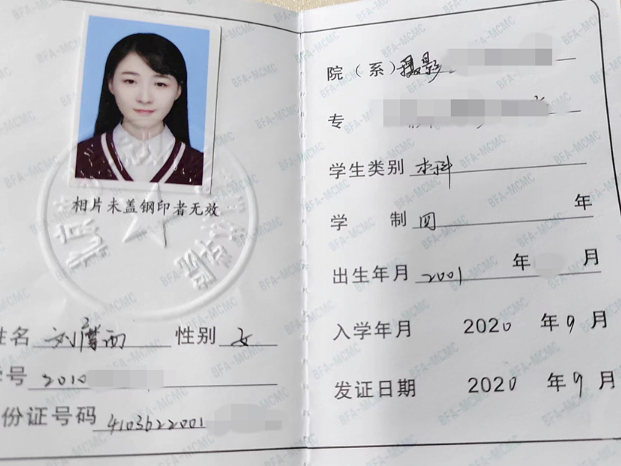 相片未盖钢印者无效
姓名 刘 性别 女
学号 2010
份证号码 4103622001
院（系）摄影
专
学生类别 本科
学 制 四 年
出生年月 2001 年 月
入学年月 2020 年 9 月
发证日期 2020 年 9 月
BFA-MCMC